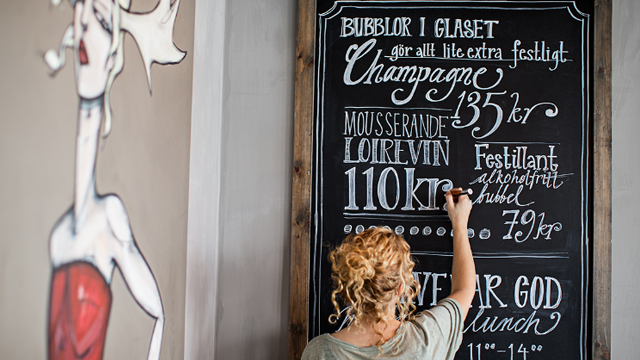 BUBBLOR I GLASET
gör allt lite extra festligt
Champagne
135 kr
MOUSSERANDE
LOIREVIN
110 kr
Festillant
alkoholfritt
bubbel
79 kr
HAR GOD
lunch
11⁰⁰-14⁰⁰